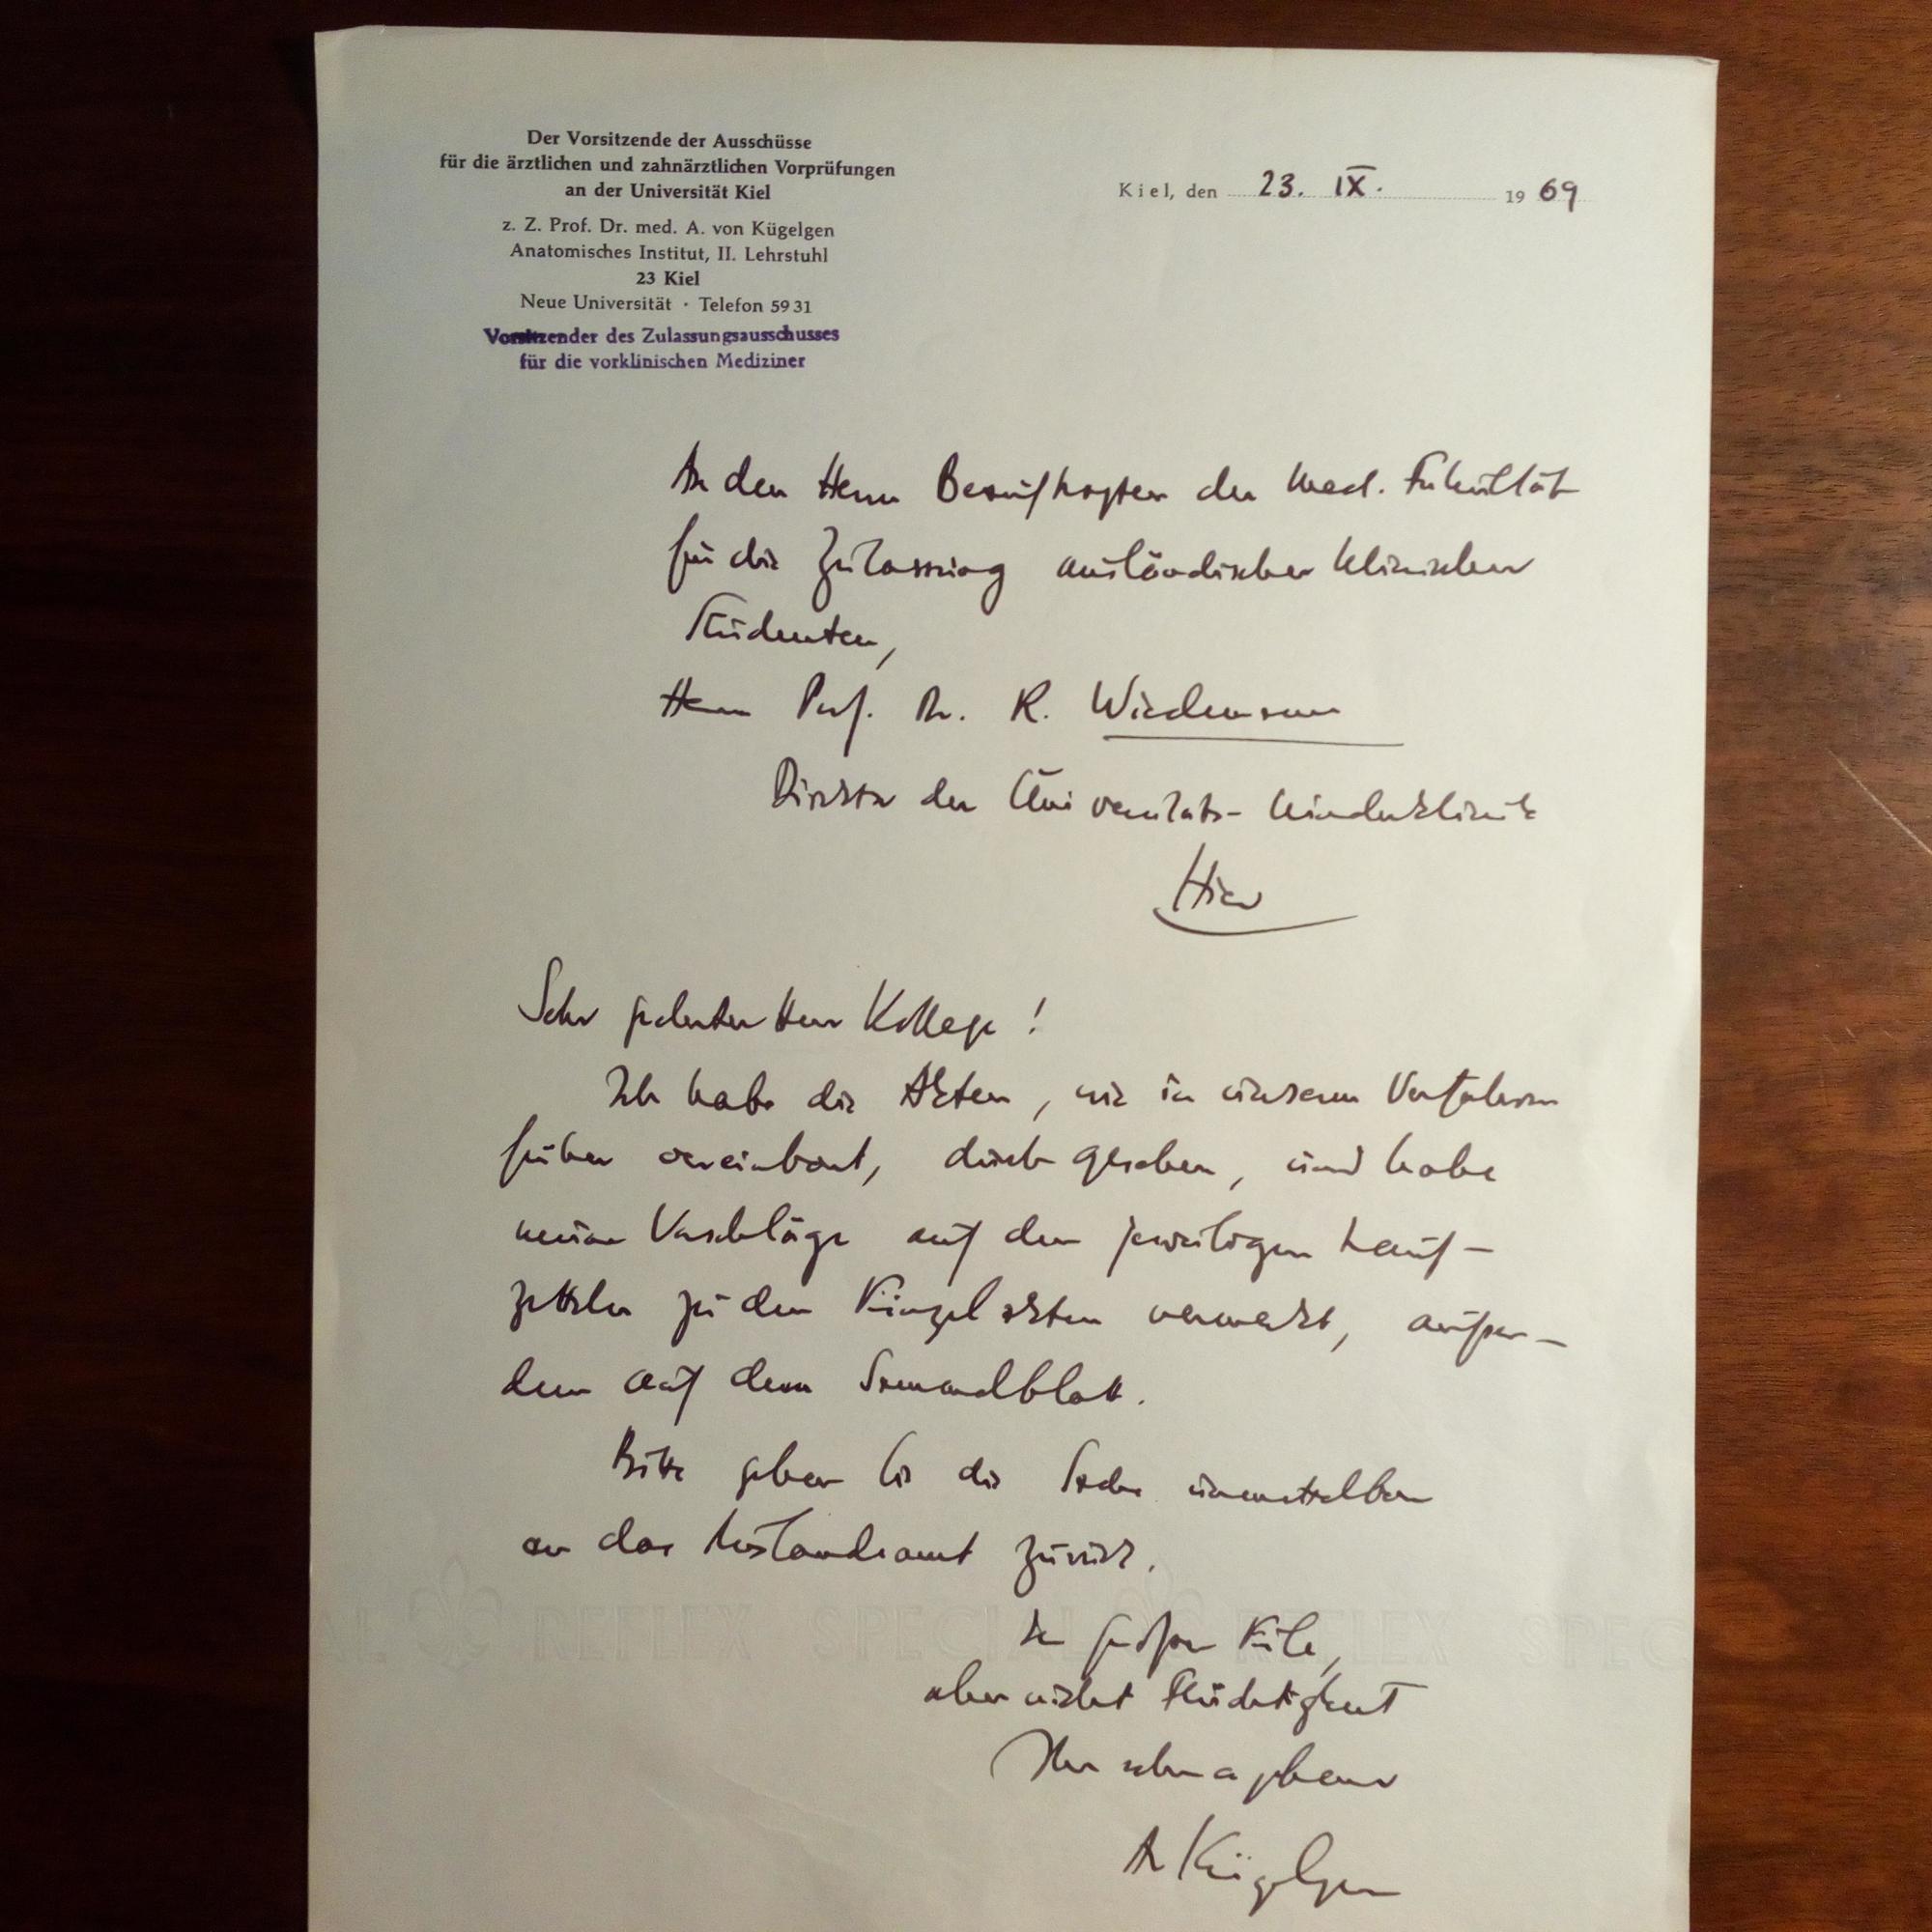 Der Vorsitzende der Ausschüsse
für die ärztlichen und zahnärztlichen Vorprüfungen
an der Universität Kiel
z. Z. Prof. Dr. med. A. von Kügelgen
Anatomisches Institut, II. Lehrstuhl
23 Kiel
Neue Universität · Telefon 59 31
Vorsitzender des Zulassungsausschusses
für die vorklinischen Mediziner
Kiel, den 23. IX. 1969
An den Herrn Beauftragten der Med. Fakultät
für die Zulassung ausländischer klinischer
Studenten,
Herrn Prof. Dr. R. Wiedemann
Direktor der Universitäts-Kinderklinik
Hier
Sehr geehrter Herr Kollege!
Ich habe die Akten, wie in unserem Verfahren
früher vereinbart, durchgesehen, und habe
meine Vorschläge auf den jeweiligen Lauf-
zetteln zu den Einzelakten vermerkt, außer-
dem auf dem Sammelblatt.
Bitte geben Sie die Sache unmittelbar
an das Auslandsamt zurück.
In großer Eile,
aber nicht Flüchtigkeit
Ihr sehr ergebener
A Kügelgen
SPECIAL REFLEX SPECIAL REFLEX SPEC